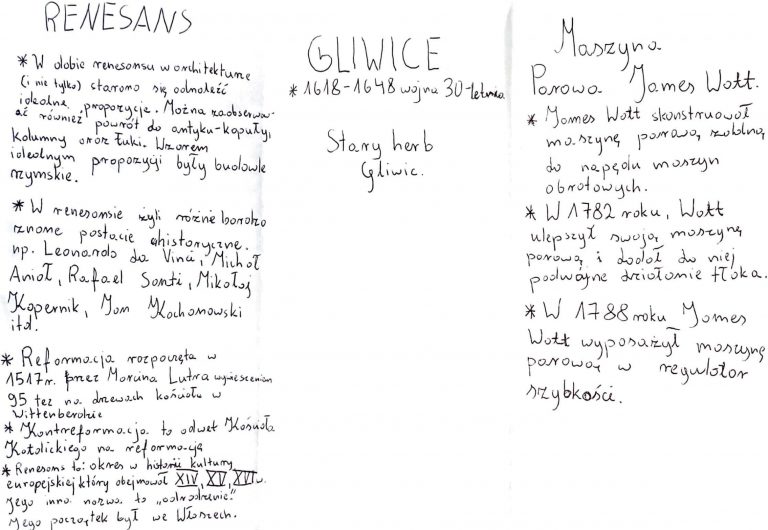 RENESANS
* W dobie renesansu w architekturze
(i nie tylko) starano się odnaleźć
idealne propozycje. Można zaobserwow-
ać również powrót do antyku-kopuły,
kolumny oraz łuki. Wzorem
idealnym propozycji były budowle
rzymskie.
* W renesansie żyli różne bardzo
znane postacie historyczne.
np. Leonardo da Vinci, Michał
Anioł, Rafael Santi, Mikołaj
Kopernik, Jan Kochanowski
itd.
* Reformacja rozpoczęta w
1517r. przez Marcina Lutra wywieszeniem
95 tez na drzwach kościoła w
Wittenberdzie
* Kontreformacja to odwet Kościoła
Katolickiego na reformacją
* Renesans to: okres w historii kultury
europejskiej który obejmował XIV, XV, XVI w.
Jego inna nazwa to "odrodzenie".
Jego początek był we Włoszech.
GLIWICE
* 1618-1648 wojna 30-letnia
Stary herb
Gliwic.
Maszyna
Parowa James Watt.
* James Watt skonstruował
maszynę parową zdolną
do napędu maszyn
obrotowych.
* W 1782 roku, Watt
ulepszył swoją maszynę
parową i dodał do niej
podwójne działanie tłoka.
* W 1788 roku James
Watt wyposażył maszynę
parową w regulator
szybkości.